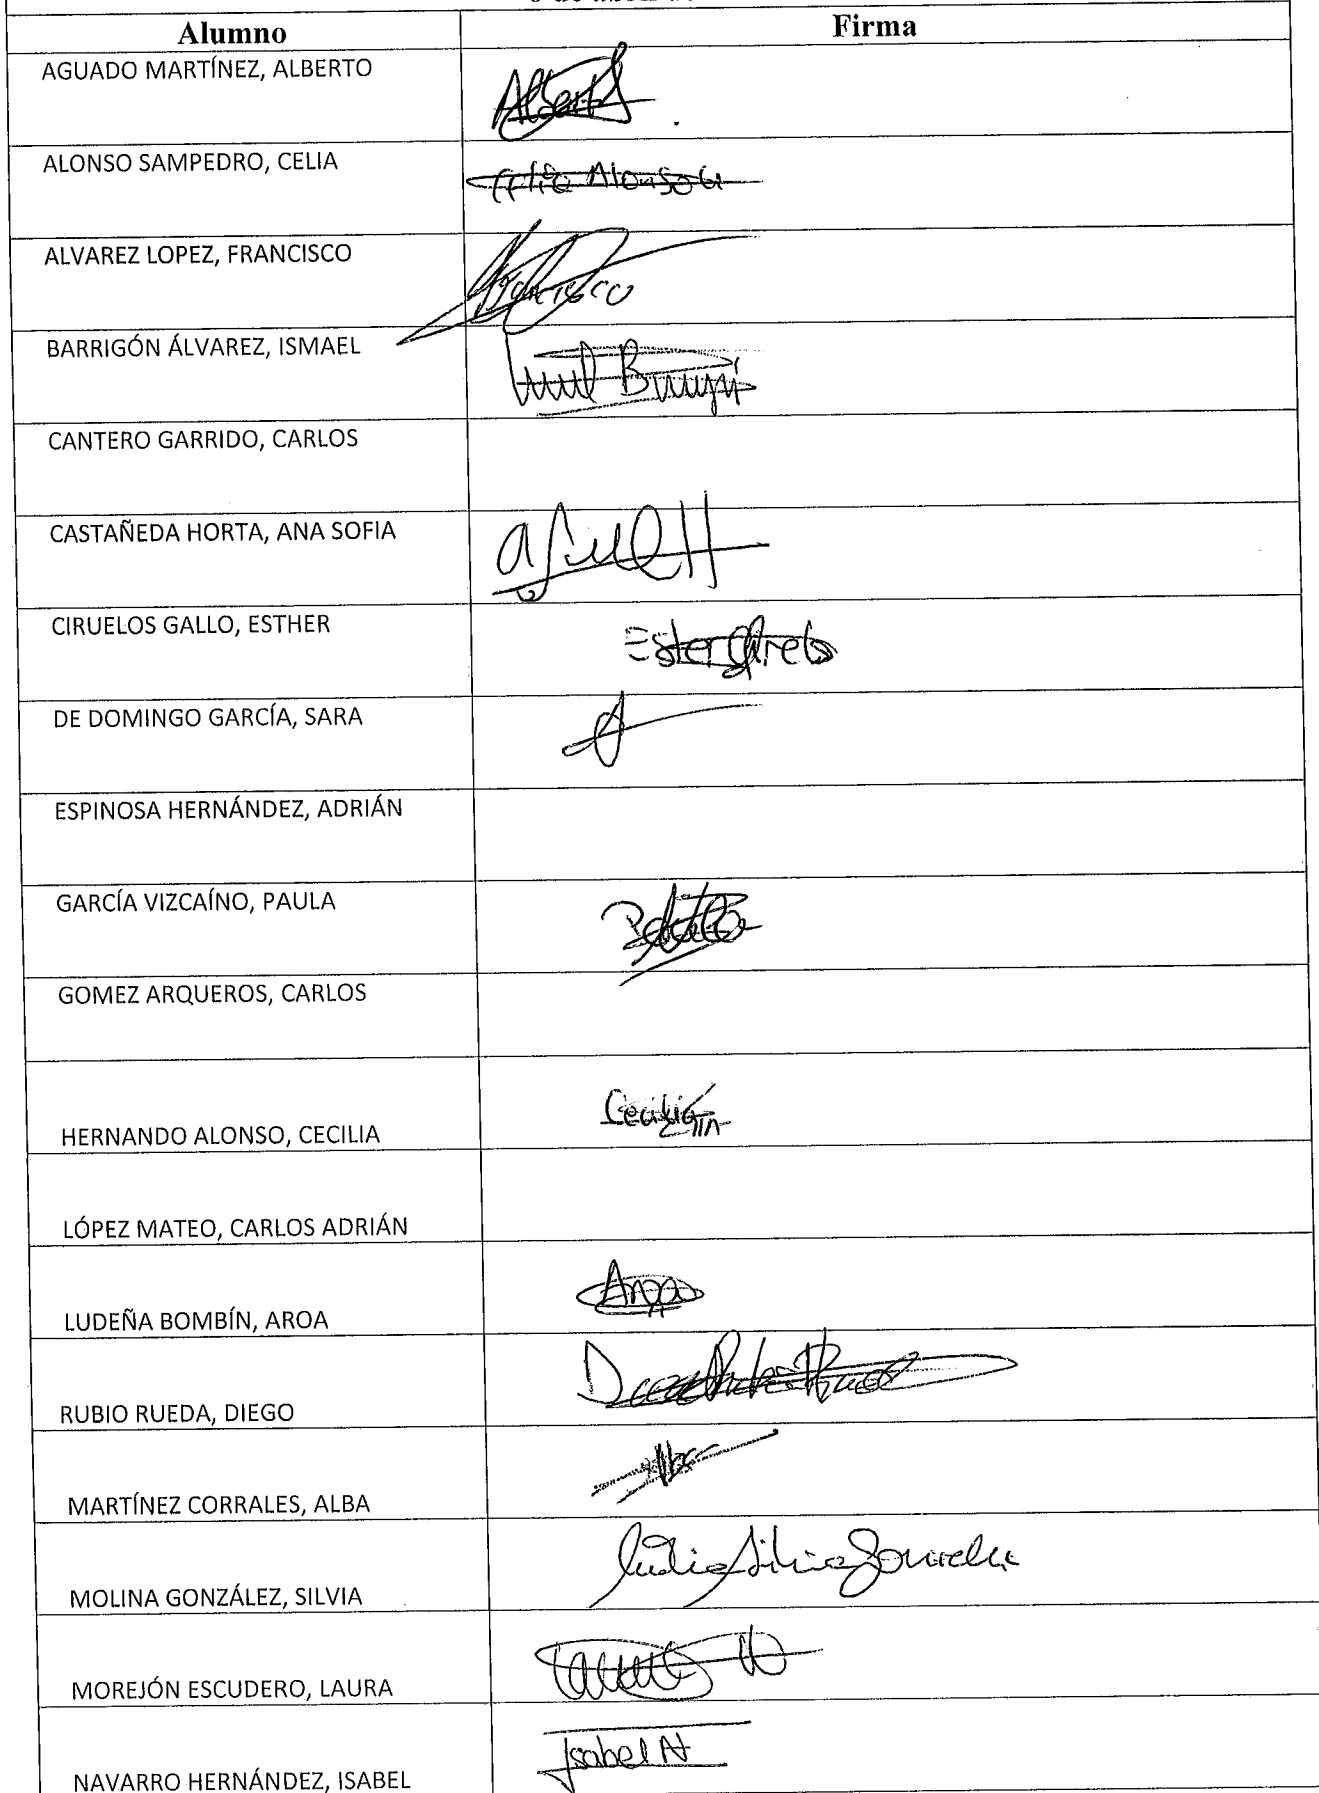 Alumno Firma
AGUADO MARTÍNEZ, ALBERTO
Albert
ALONSO SAMPEDRO, CELIA
Celia Alonso
ALVAREZ LOPEZ, FRANCISCO
Francisco
BARRIGÓN ÁLVAREZ, ISMAEL
CANTERO GARRIDO, CARLOS
CASTAÑEDA HORTA, ANA SOFIA
CIRUELOS GALLO, ESTHER
Ester
DE DOMINGO GARCÍA, SARA
ESPINOSA HERNÁNDEZ, ADRIÁN
GARCÍA VIZCAÍNO, PAULA
GOMEZ ARQUEROS, CARLOS
Cecilia
HERNANDO ALONSO, CECILIA
LÓPEZ MATEO, CARLOS ADRIÁN
Aroa
LUDEÑA BOMBÍN, AROA
RUBIO RUEDA, DIEGO
MARTÍNEZ CORRALES, ALBA
MOLINA GONZÁLEZ, SILVIA
MOREJÓN ESCUDERO, LAURA
Isabel N
NAVARRO HERNÁNDEZ, ISABEL